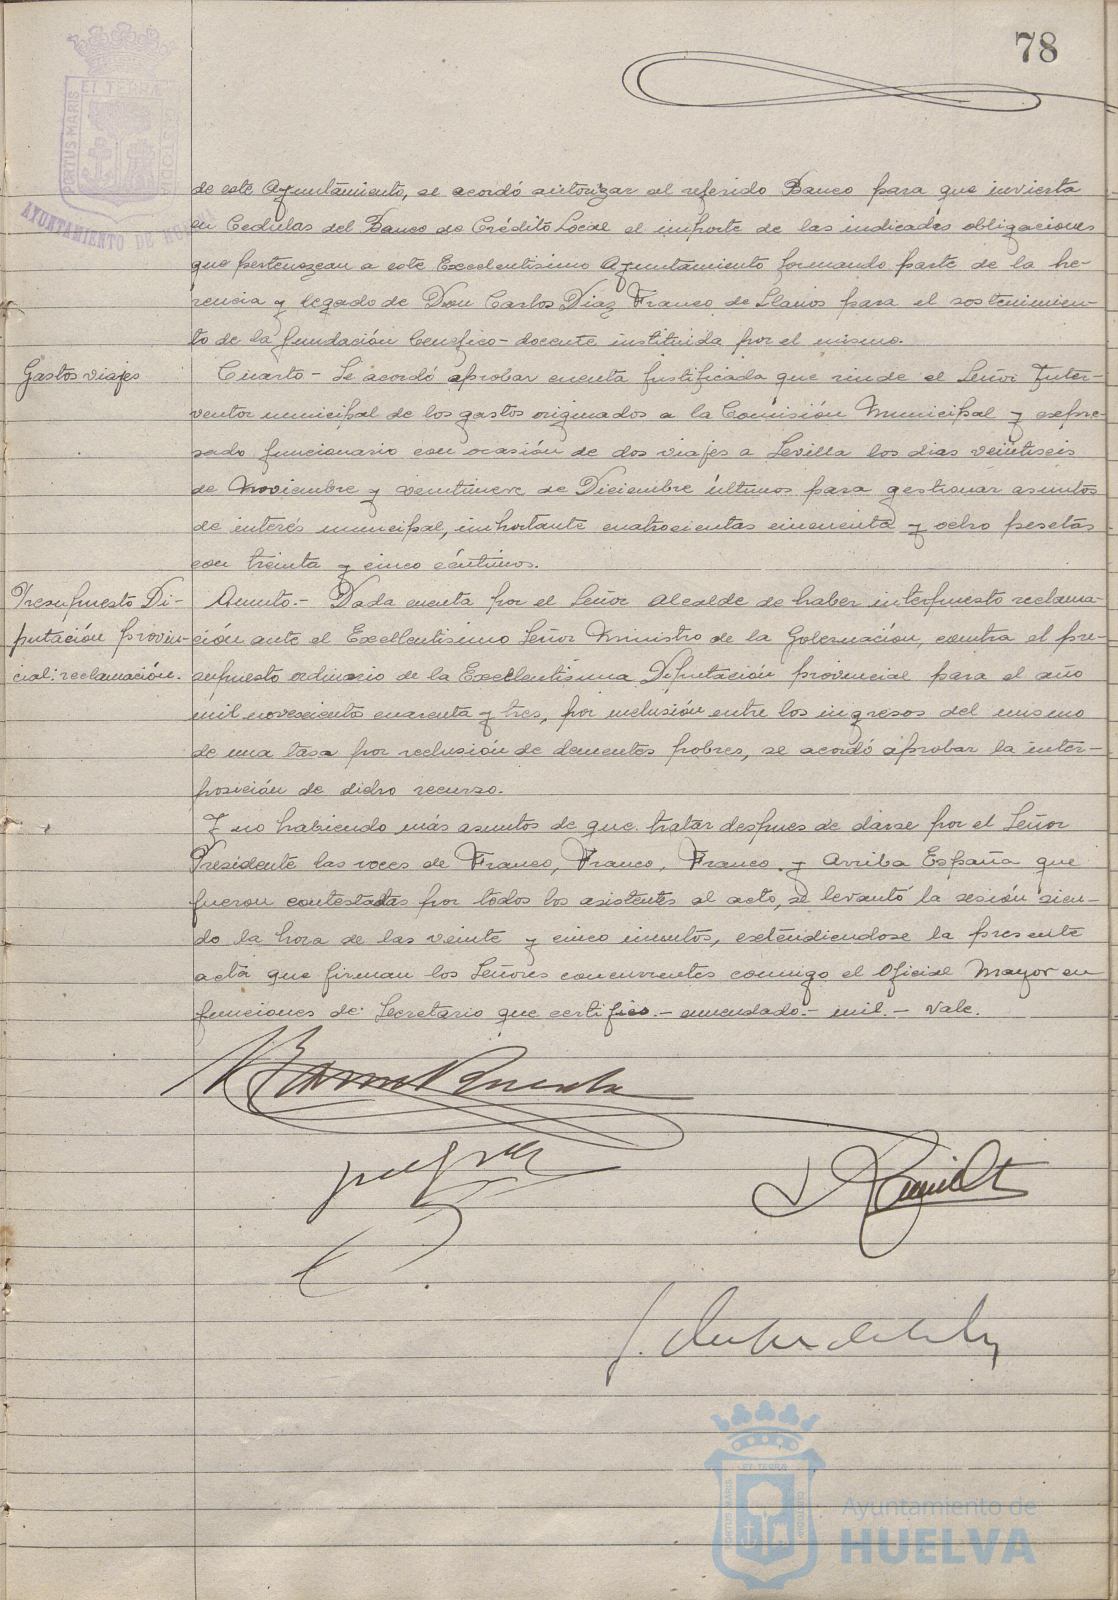 78
PORTUS MARIS ET TERRAE CUSTODIA
AYUNTAMIENTO DE HUELVA
de este Ayuntamiento, se acordó autorizar al referido Banco para que invierta
en Cedulas del Banco de Crédito Local el importe de las indicadas obligaciones
que pertenezcan a este Excelentisimo Ayuntamiento formando parte de la he-
rencia y legado de Don Carlos Diaz Franco de Llanos para el sostenimien-
to de la fundación benefico-docente instituida por el mismo.
Gastos viajes
Cuarto - Se acordó aprobar cuenta justificada que rinde el Señor Inter-
ventor municipal de los gastos originados a la Comisión Municipal y expre-
sado funcionario con ocasión de dos viajes a Sevilla los dias veintiseis
de Noviembre y veintinueve de Diciembre últimos para gestionar asuntos
de interés municipal, importante cuatrocientas cincuenta y ocho pesetas
con treinta y cinco céntimos.
Presupuesto Di-
putación provin-
cial: reclamación.
Asunto.- Dada cuenta por el Señor Alcalde de haber interpuesto reclama-
ción ante el Excelentisimo Señor Ministro de la Gobernación, contra el pre-
supuesto ordinario de la Excelentisima Diputación provincial para el año
mil novescientos cuarenta y tres, por inclusión entre los ingresos del mismo
de una tasa por reclusión de dementes pobres, se acordó aprobar la inter-
posición de dicho recurso.
Y no habiendo más asuntos de que tratar despues de darse por el Señor
Presidente las voces de Franco, Franco, Franco y Arriba España que
fueron contestadas por todos los asistentes al acto, se levantó la sesión sien-
do la hora de las veinte y cinco minutos, extendiendose la presente
acta que firman los Señores concurrentes conmigo el Oficial Mayor en
funciones de Secretario que certifico.- enmendado.- mil.- Vale.
ET TERRAE
PORTUS MARIS
CUSTODIA
Ayuntamiento de
HUELVA